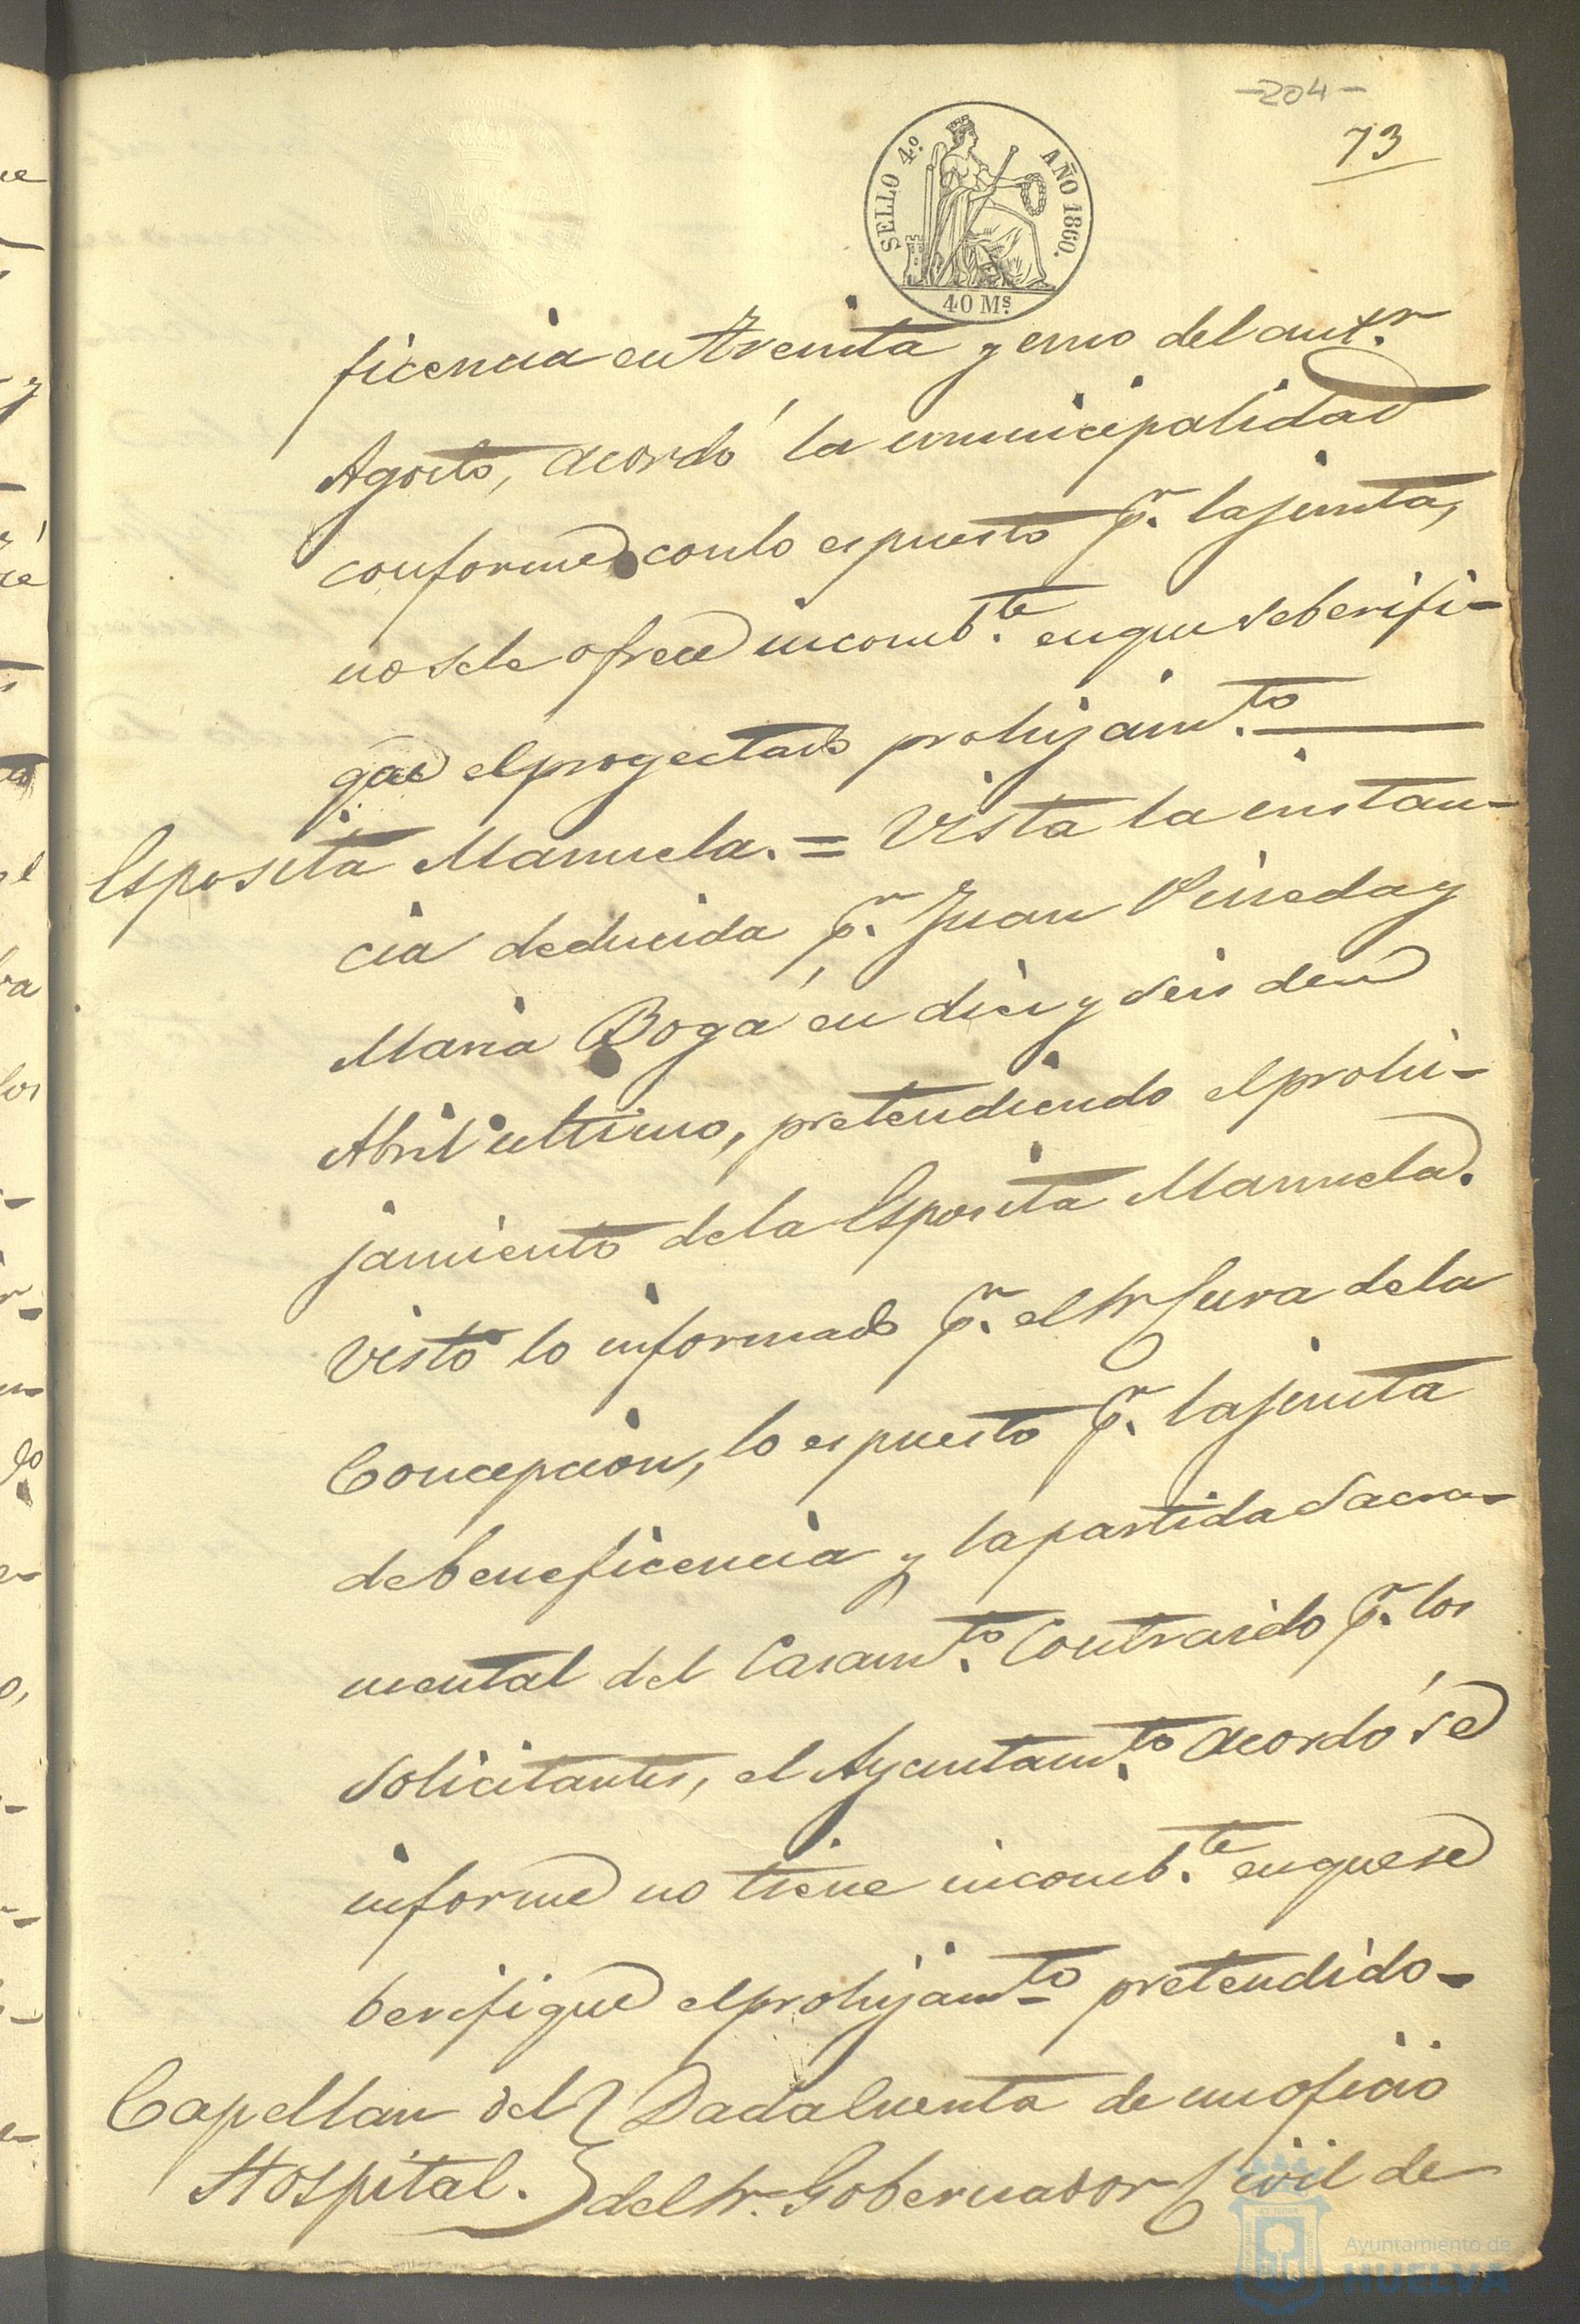 -204-
73
SELLO 4º. AÑO 1860.
40 Ms.
ficencia en treinta y uno del antr.
Agosto, acordó la municipalidad
conforme con lo espuesto pr. la junta,
no sele ofrece incombte. en que seberifi-
que el progectado prohijamto.
Esposita Manuela. = Vista la instan-
cia deducida pr. Juan Pineda y
Maria Boga en diez y seis de
Abril ultimo, pretendiendo el prohi-
jamiento dela Esposita Manuela.
Visto lo informado pr. el Sr Cura dela
Concepcion, lo espuesto pr. la junta
de beneficencia y la partida Sacra-
mental del Casamto. Contraido pr. los
solicitantes, el Ayuntamto. acordó se
informe no tiene incombte. en que se
berifique el prohijamto pretendido-
Capellan del } Dada Cuenta de un oficio
Hospital. } del Sr. Gobernador Civil de
Ayuntamiento de
HUELVA